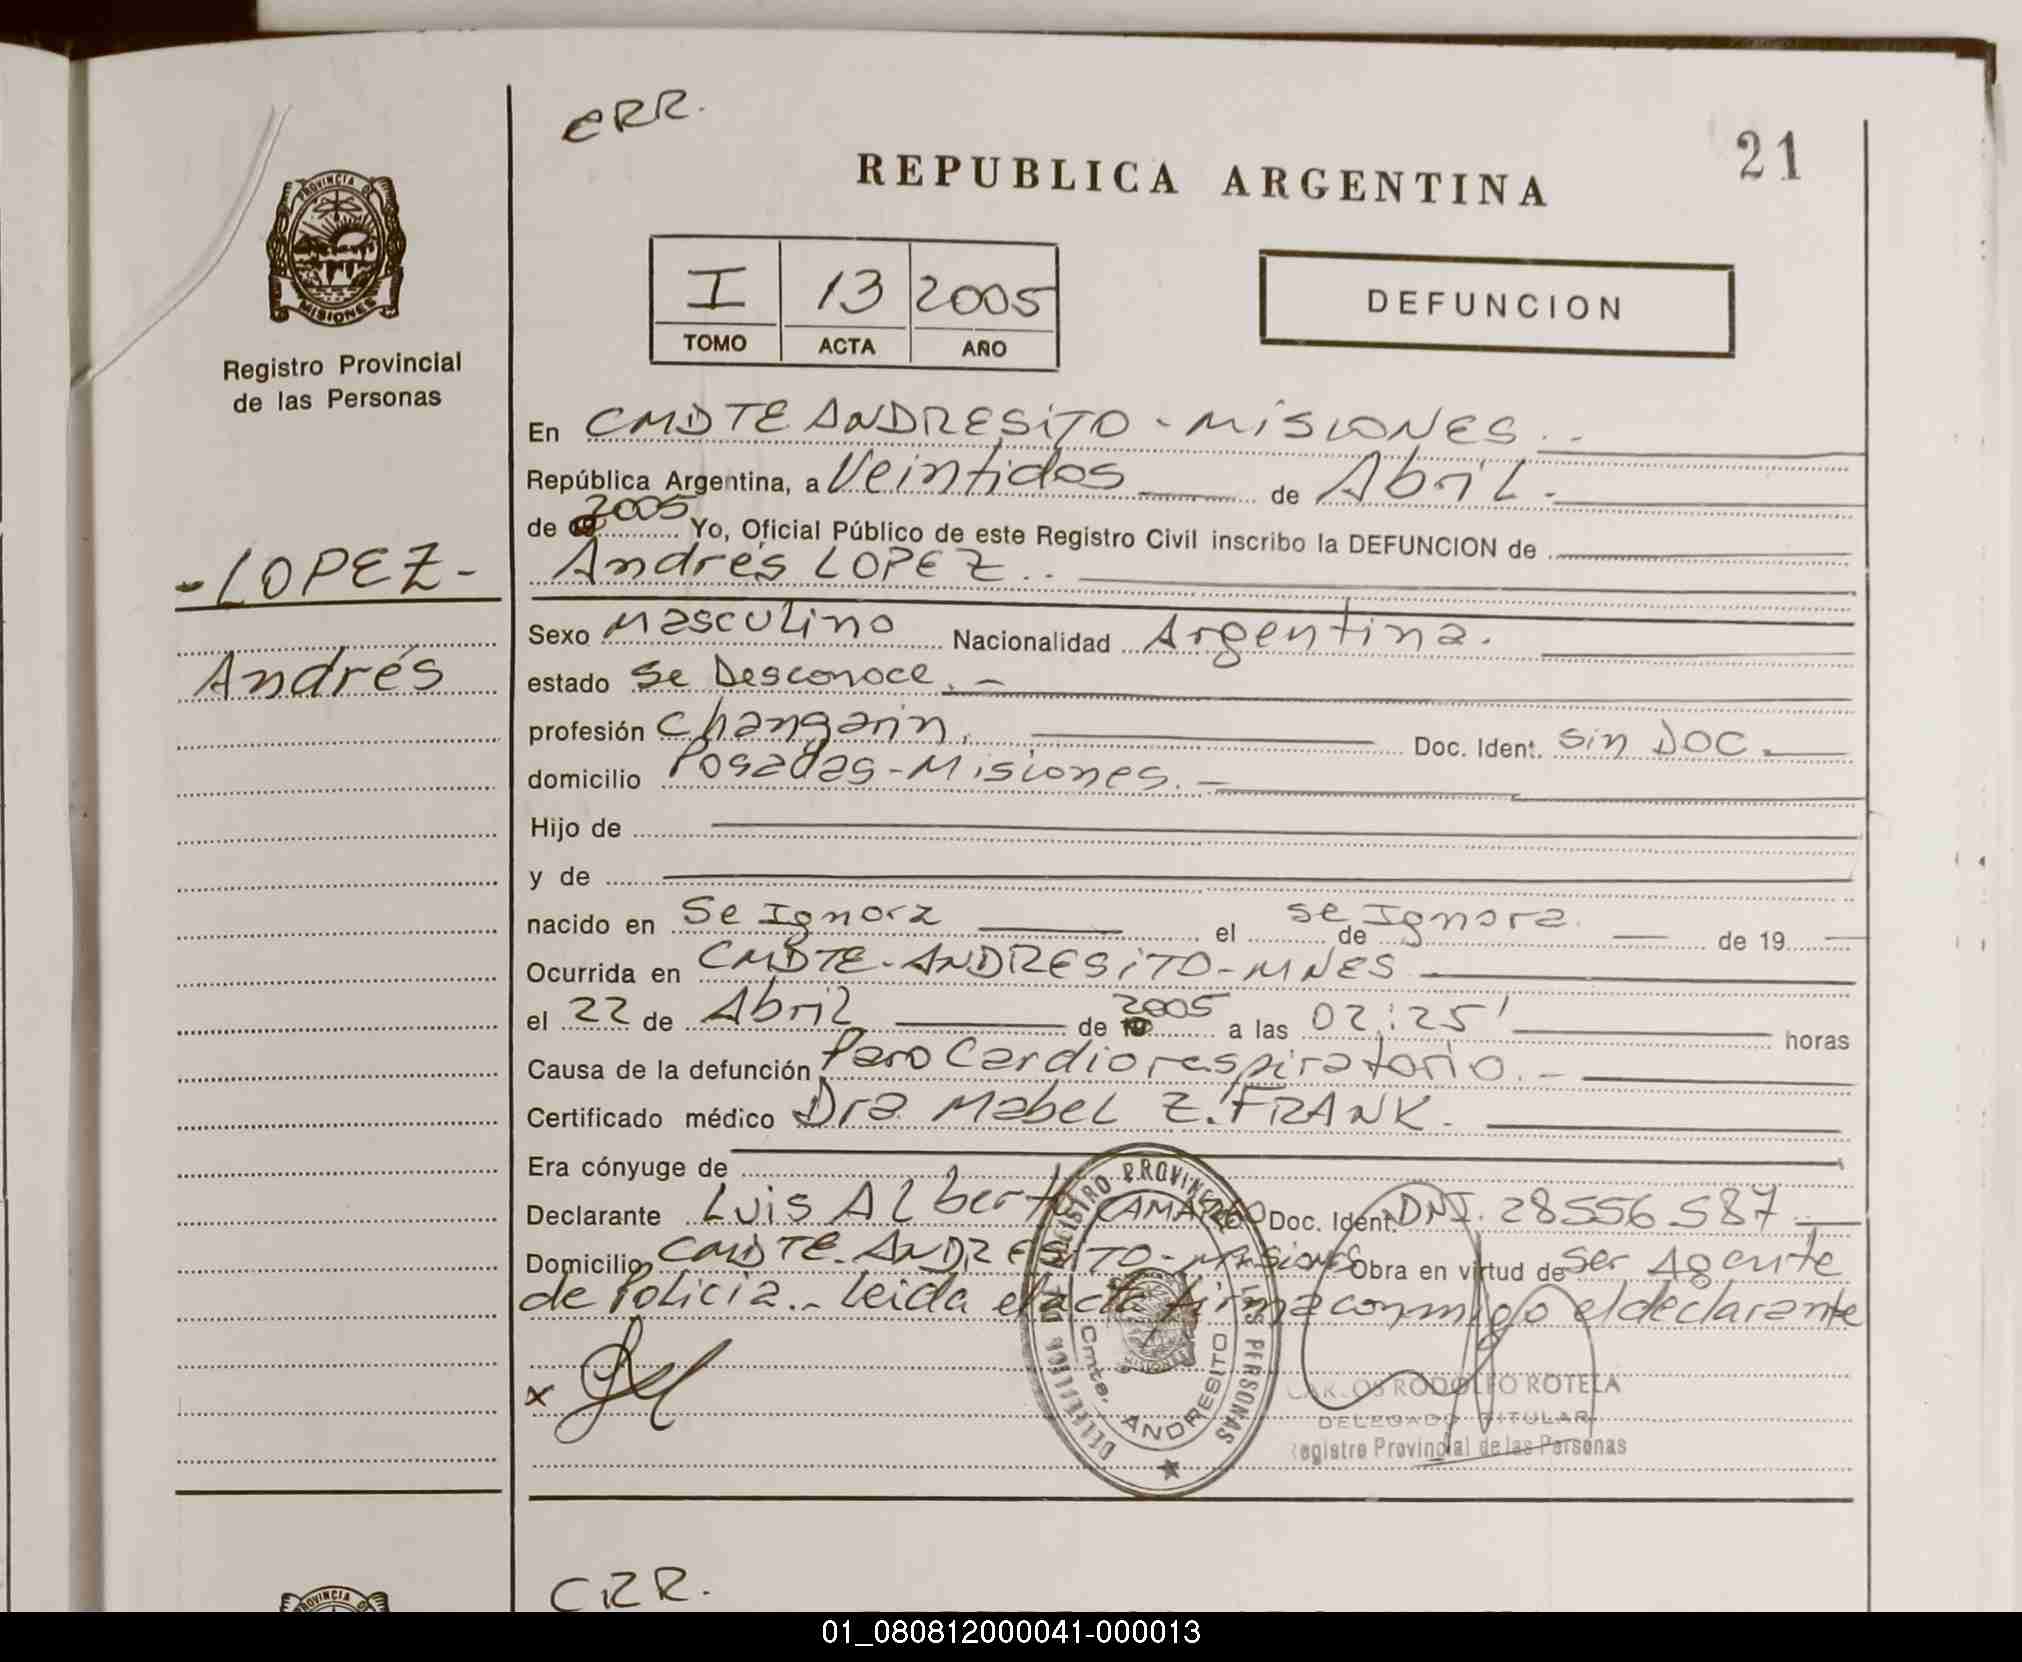 CRR.
REPUBLICA ARGENTINA
21
PROVINCIA DE
MISIONES
Registro Provincial
de las Personas
I 13 2005
TOMO ACTA AÑO
DEFUNCION
En CMDTE ANDRESiTO - MiSiONES.
República Argentina, a Veintidos de Abril.
de 2005 Yo, Oficial Público de este Registro Civil inscribo la DEFUNCION de
Andrés LOPEZ..
- LOPEZ -
Andrés
Sexo Masculino Nacionalidad Argentina.
estado Se Desconoce. -
profesión Changarin. Doc. Ident. Sin DOC.
domicilio Posadas - Misiones. -
Hijo de
y de
nacido en Se Ignora el Se de Ignora. de 19
Ocurrida en CMDTE - ANDRESiTO - MNES
el 22 de Abril de 2005 a las 02:25' horas
Causa de la defunción Paro Cardiorespiratorio. -
Certificado médico Dra. Mabel Z. FRANK.
Era cónyuge de
Declarante Luis Alberto CAMARGO Doc. Ident. DNI. 28556587
Domicilio CMDTE. ANDRESiTO - Misiones Obra en virtud de ser Agente
de Policia.- Leida el acta firma conmigo el declarante
x
REGISTRO PROVINCIAL DE LAS PERSONAS
Cmte. ANDRESITO
CARLOS RODOLFO ROTELA
DELEGADO TITULAR
Registro Provincial de las Personas
CRR.
PROVINCIA
01_080812000041-000013